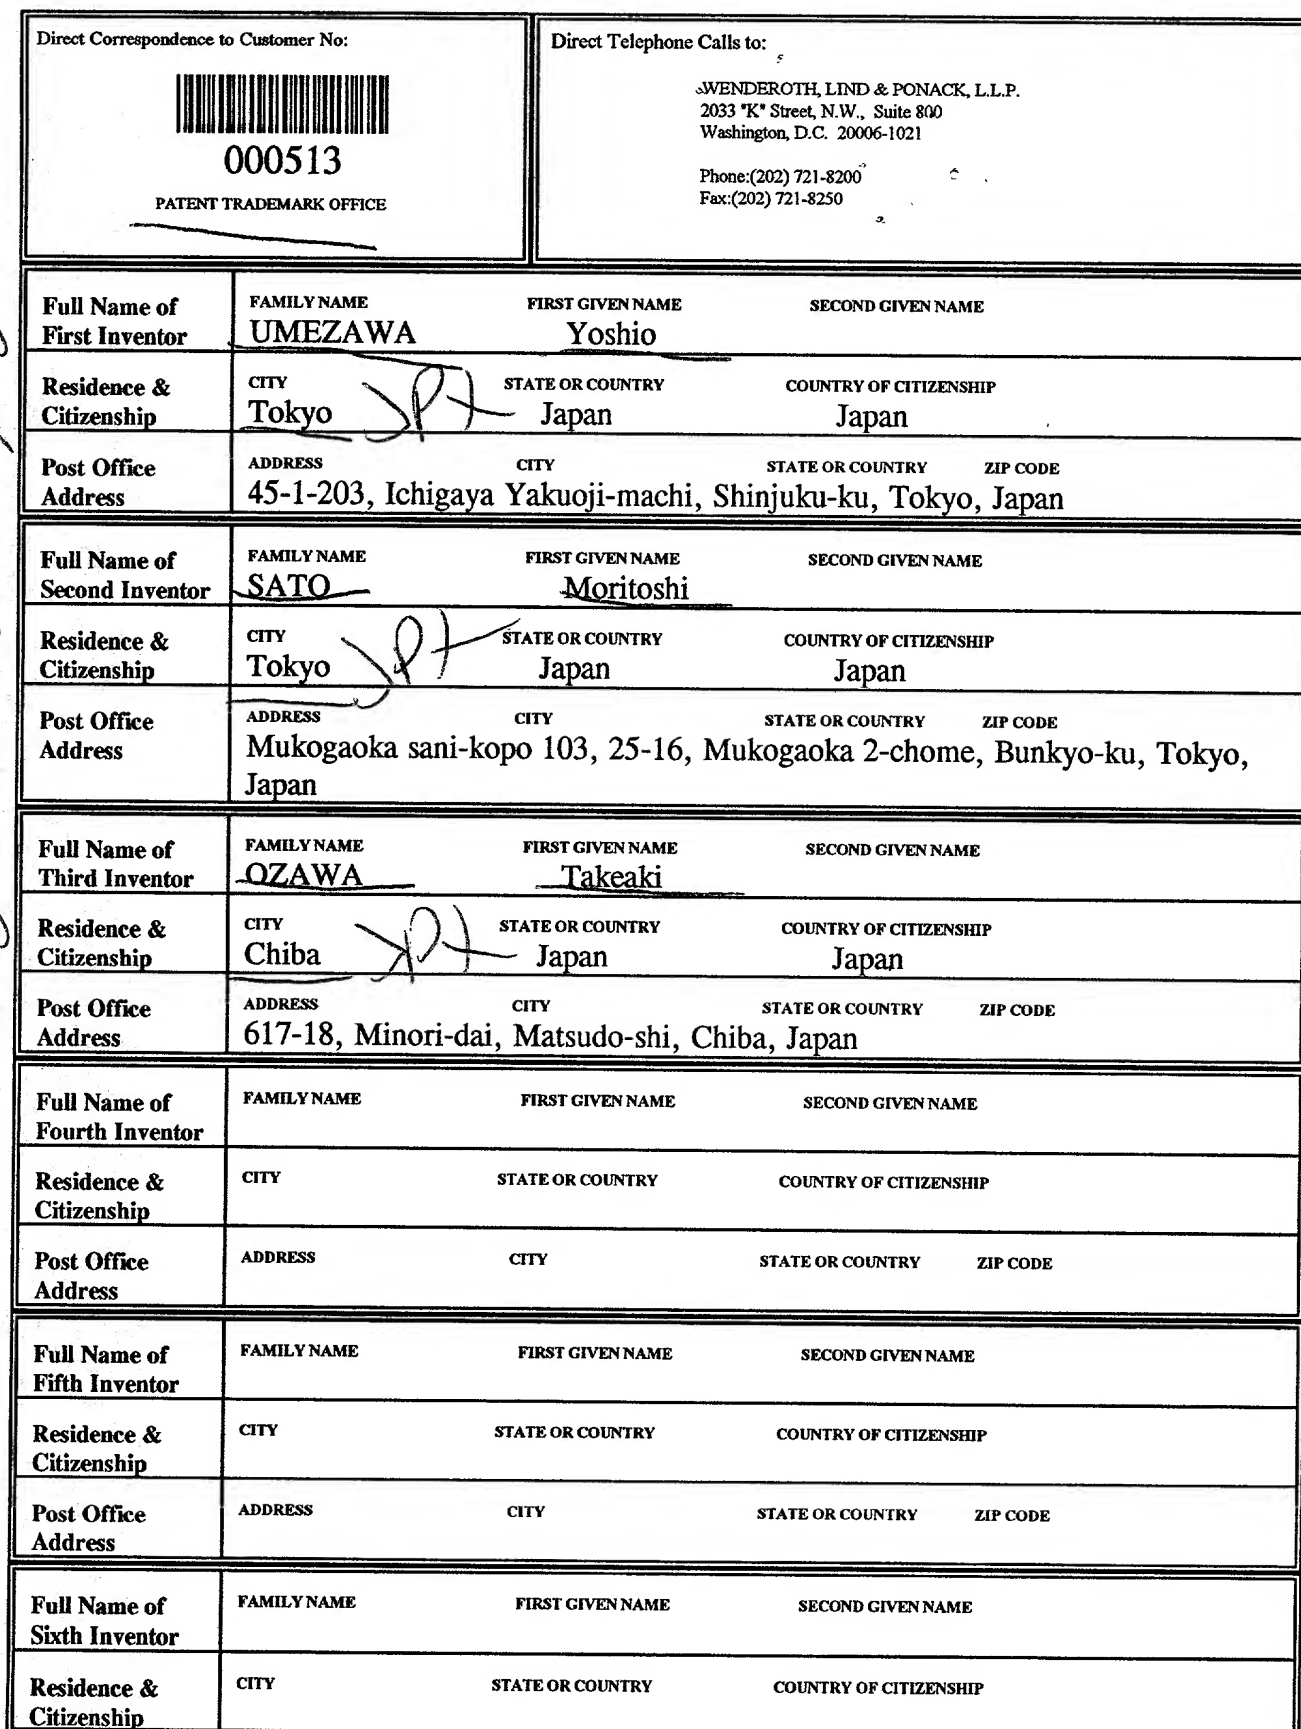 Direct Correspondence to Customer No:
000513
PATENT TRADEMARK OFFICE
Direct Telephone Calls to:
WENDEROTH, LIND & PONACK, L.L.P.
2033 "K" Street, N.W., Suite 800
Washington, D.C. 20006-1021
Phone:(202) 721-8200
Fax:(202) 721-8250
Full Name of First Inventor
FAMILY NAME FIRST GIVEN NAME SECOND GIVEN NAME
UMEZAWA Yoshio
Residence & Citizenship
CITY STATE OR COUNTRY COUNTRY OF CITIZENSHIP
Tokyo JPX Japan Japan
Post Office Address
ADDRESS CITY STATE OR COUNTRY ZIP CODE
45-1-203, Ichigaya Yakuoji-machi, Shinjuku-ku, Tokyo, Japan
Full Name of Second Inventor
FAMILY NAME FIRST GIVEN NAME SECOND GIVEN NAME
SATO Moritoshi
Residence & Citizenship
CITY STATE OR COUNTRY COUNTRY OF CITIZENSHIP
Tokyo JPX Japan Japan
Post Office Address
ADDRESS CITY STATE OR COUNTRY ZIP CODE
Mukogaoka sani-kopo 103, 25-16, Mukogaoka 2-chome, Bunkyo-ku, Tokyo,
Japan
Full Name of Third Inventor
FAMILY NAME FIRST GIVEN NAME SECOND GIVEN NAME
OZAWA Takeaki
Residence & Citizenship
CITY STATE OR COUNTRY COUNTRY OF CITIZENSHIP
Chiba JPX Japan Japan
Post Office Address
ADDRESS CITY STATE OR COUNTRY ZIP CODE
617-18, Minori-dai, Matsudo-shi, Chiba, Japan
Full Name of Fourth Inventor
FAMILY NAME FIRST GIVEN NAME SECOND GIVEN NAME
Residence & Citizenship
CITY STATE OR COUNTRY COUNTRY OF CITIZENSHIP
Post Office Address
ADDRESS CITY STATE OR COUNTRY ZIP CODE
Full Name of Fifth Inventor
FAMILY NAME FIRST GIVEN NAME SECOND GIVEN NAME
Residence & Citizenship
CITY STATE OR COUNTRY COUNTRY OF CITIZENSHIP
Post Office Address
ADDRESS CITY STATE OR COUNTRY ZIP CODE
Full Name of Sixth Inventor
FAMILY NAME FIRST GIVEN NAME SECOND GIVEN NAME
Residence & Citizenship
CITY STATE OR COUNTRY COUNTRY OF CITIZENSHIP